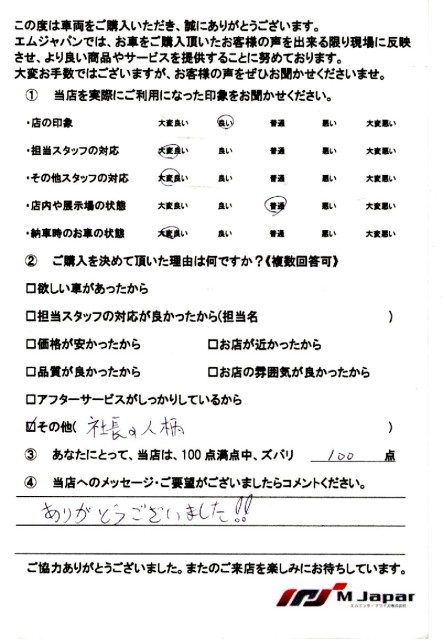 この度は車両をご購入いただき、誠にありがとうございます。
エムジャパンでは、お車をご購入頂いたお客様の声を出来る限り現場に反映
させ、より良い商品やサービスを提供することに努めております。
大変お手数ではございますが、お客様の声をぜひお聞かせくださいませ。
① 当店を実際にご利用になった印象をお聞かせください。
・店の印象 大変良い 良い 普通 悪い 大変悪い
・担当スタッフの対応 大変良い 良い 普通 悪い 大変悪い
・その他スタッフの対応 大変良い 良い 普通 悪い 大変悪い
・店内や展示場の状態 大変良い 良い 普通 悪い 大変悪い
・納車時のお車の状態 大変良い 良い 普通 悪い 大変悪い
② ご購入を決めて頂いた理由は何ですか？《複数回答可》
□欲しい車があったから
□担当スタッフの対応が良かったから(担当名 )
□価格が安かったから □お店が近かったから
□品質が良かったから □お店の雰囲気が良かったから
□アフターサービスがしっかりしているから
☑その他( 社長の人柄 )
③ あなたにとって、当店は、100点満点中、ズバリ 100 点
④ 当店へのメッセージ・ご要望がございましたらコメントください。
ありがとうございました!!
ご協力ありがとうございました。またのご来店を楽しみにお待ちしています。
M Japan